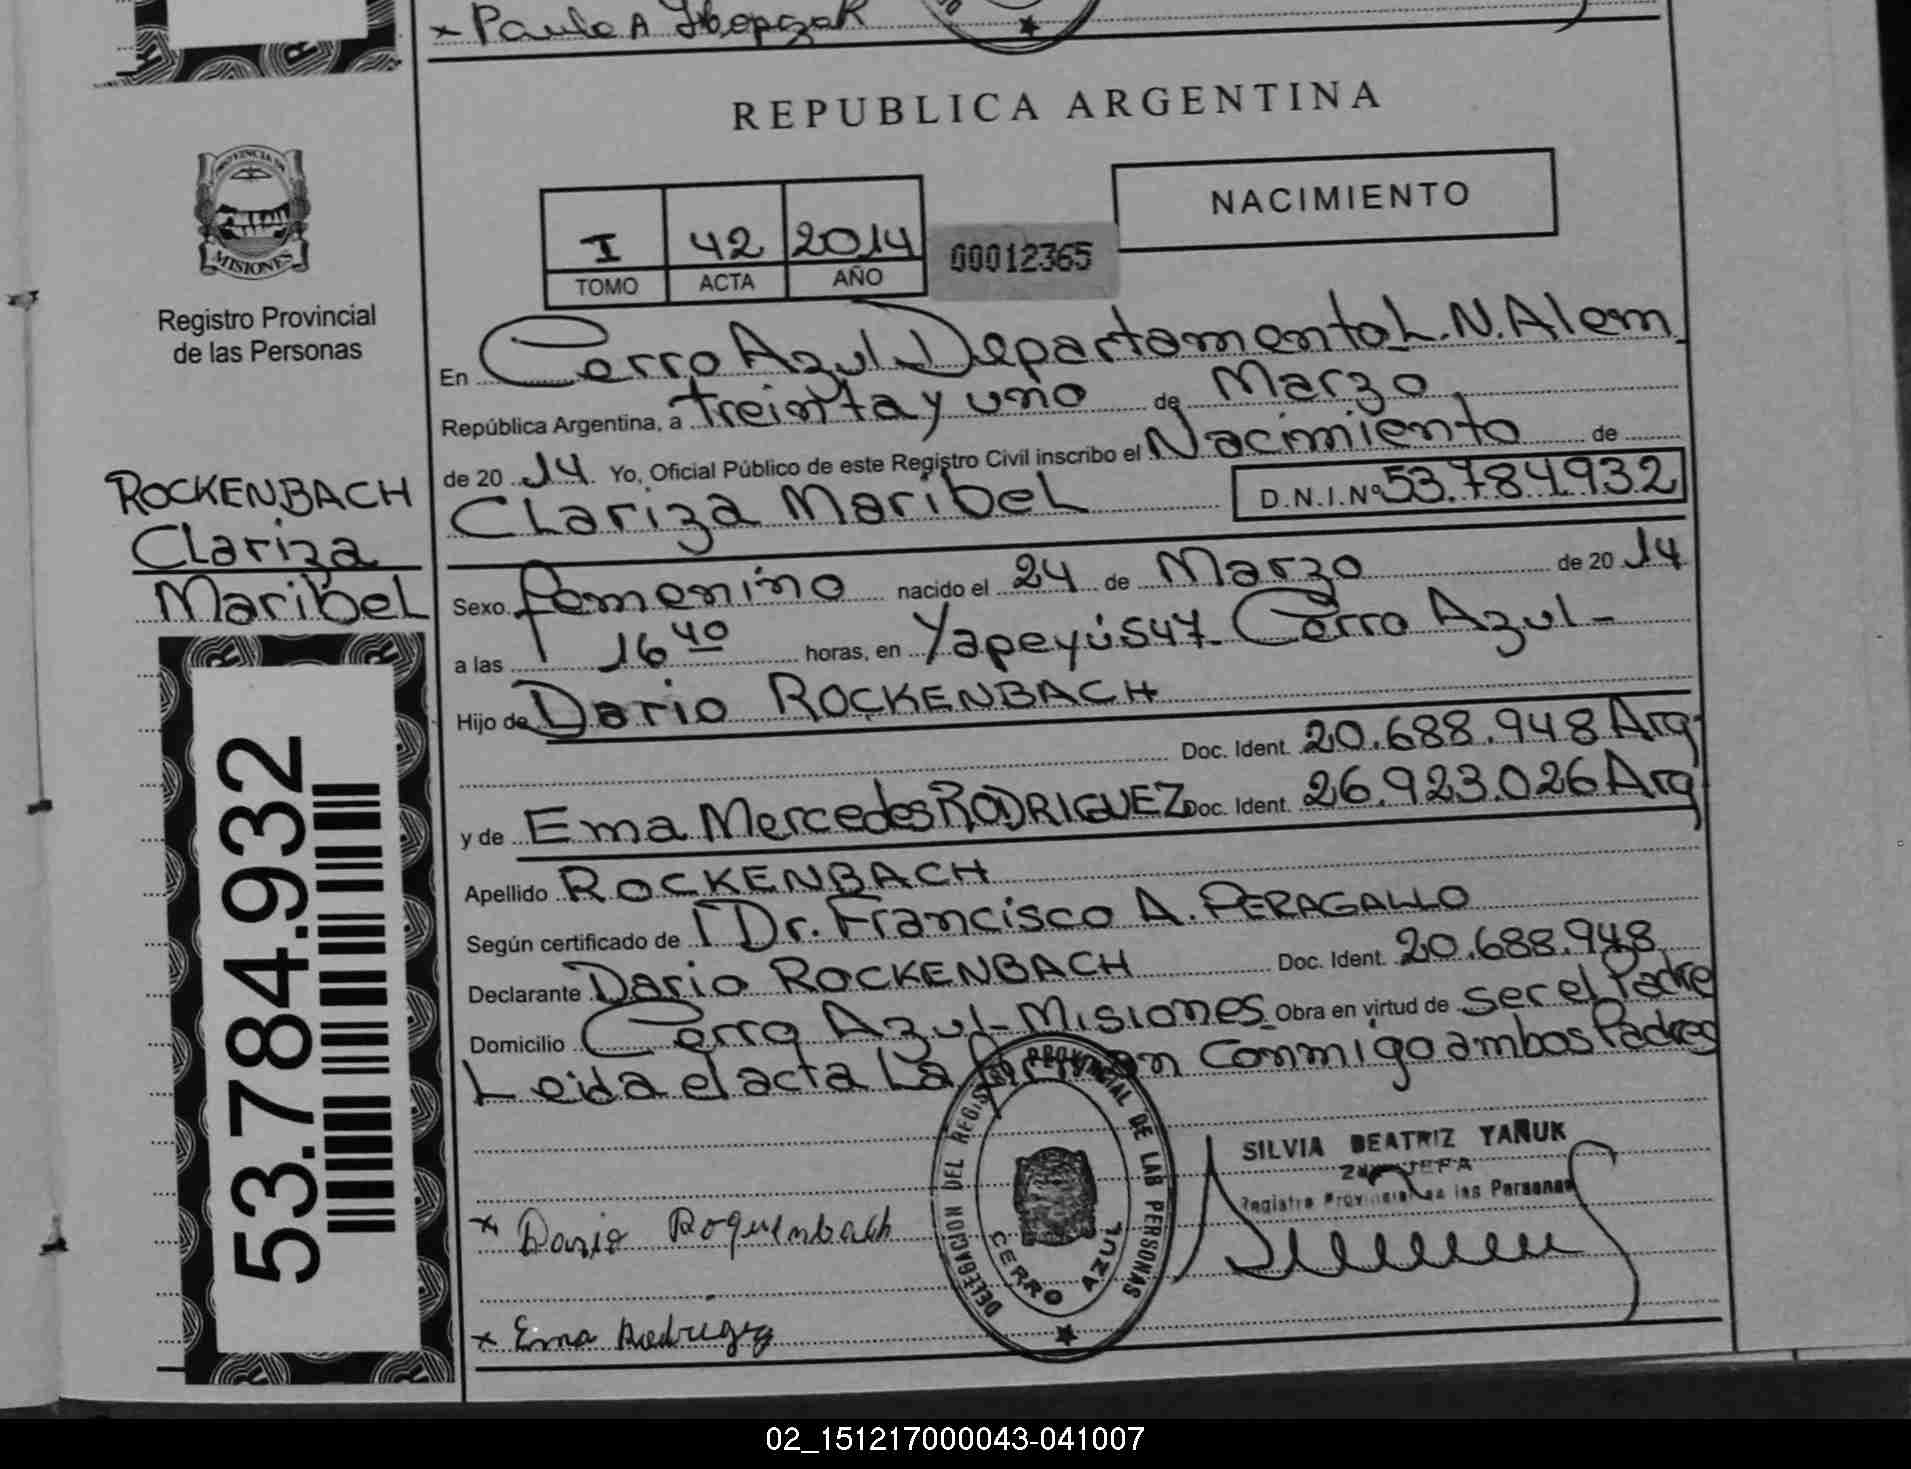 x Paula A
REPUBLICA ARGENTINA
PROVINCIA DE
MISIONES
Registro Provincial
de las Personas
I 42 2014
TOMO ACTA AÑO
00012365
NACIMIENTO
En Cerro Azul Departamento L.N.Alem
República Argentina, a treinta y uno de Marzo
de 20 14 Yo, Oficial Público de este Registro Civil inscribo el Nacimiento de
Clariza Maribel D.N.I.Nº 53.784.932
ROCKENBACH
Clariza
Maribel
Sexo femenino nacido el 24 de Marzo de 20 14
a las 16 40 horas, en Yapeyú 547 Cerro Azul -
Hijo de Dario ROCKENBACH
Doc. Ident. 20.688.948 Arg
y de Ema Mercedes RODRIGUEZ Doc. Ident. 26.923.026 Arg
Apellido ROCKENBACH
Según certificado de Dr. Francisco A. PERAGALLO
Declarante Dario ROCKENBACH Doc. Ident. 20.688.948
Domicilio Cerro Azul - Misiones Obra en virtud de ser el Padre
Leida el acta La firman Conmigo ambos Padres
53.784.932
DELEGACION DEL REGISTRO PROVINCIAL DE LAS PERSONAS
CERRO AZUL
SILVIA BEATRIZ YAÑUK
JEFA
Registro Provincial de las Personas
x Dario Roquenbach
x Ema Rodriguez
02_151217000043-041007